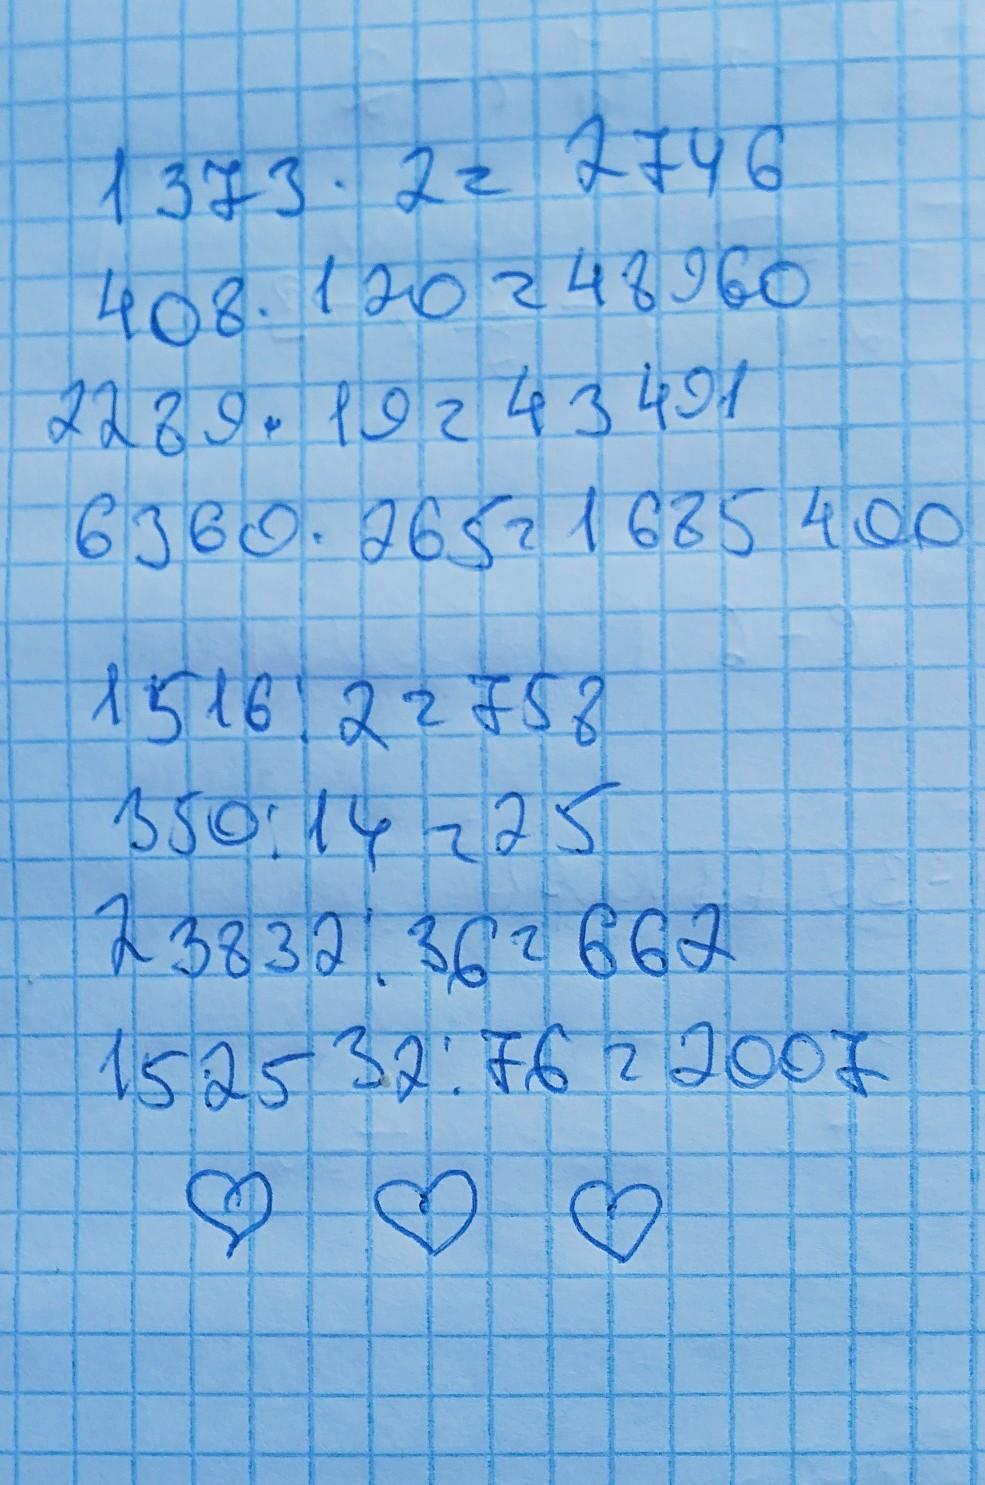 1373 · 2 = 2746
408 · 120 = 48960
2289 · 19 = 43491
6360 · 265 = 1685400
1516 : 2 = 758
350 : 14 = 25
23832 : 36 = 662
152532 : 76 = 2007